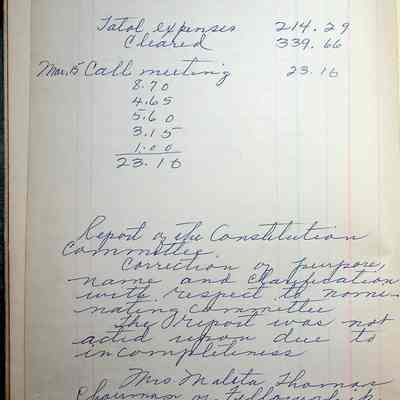 Total expenses 214.29
Cleared 339.66
Mar. 15 Call meeting 23.10
8.70
4.65
5.60
3.15
1.00
23.10
Report of the Constitution
Committee.
Correction of purpose,
name and Clarification
with respect to nomi-
nating committee
The report was not
acted upon due to
incompleteness
Mrs. Maleta Thomas
Chairman of Fellowship